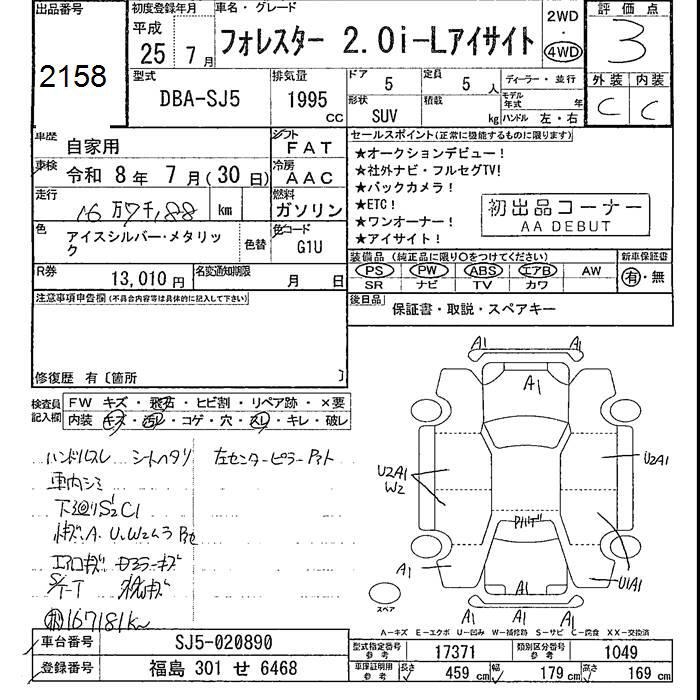 出品番号
2158
初度登録年月
平成
25年 7月
車名・グレード
フォレスター 2.0i-Lアイサイト
2WD
・
4WD
評価点
3
外装 内装
C C
型式
DBA-SJ5
排気量
1995
CC
ドア
5
定員
5人
形状
SUV
積載
kg
ディーラー・並行
モデル年式 年
ハンドル 左・右
車歴
自家用
シフト
FAT
車検
令和 8年 7月(30日)
冷房
AAC
走行
16万7千188 km
燃料
ガソリン
色
アイスシルバー・メタリック
色替
色コード
G1U
R券
13,010円
名変通知期限
月 日
セールスポイント(正常に機能するものに限ります)
★オークションデビュー!
★社外ナビ・フルセグTV!
★バックカメラ!
★ETC!
★ワンオーナー!
★アイサイト!
初出品コーナー
AA DEBUT
装備品(純正品に限り○をつけてください)
PS PW ABS エアB AW
SR ナビ TV カワ
新車保証書
有・無
後日品
保証書・取説・スペアキー
注意事項申告欄(不具合内容等は具体的に記入して下さい)
修復歴 有〔箇所 〕
検査員記入欄
FW キズ・飛石・ヒビ割・リペア跡・×要
内装 キズ・汚レ・コゲ・穴・スレ・キレ・破レ
ハンドルスレ シートヘタリ 左センターピラーPアト
車内シミ
下廻りS2C1
エアロキズ ドアミラーキズ
167181km
A1 A1
A1
U2A1
W2
U2A1
A1
A1
U1A1
A1 A1 A1
スペア
A-キズ E-エクボ U-凹み W-補修跡 S-サビ C-腐食 XX-交換済
車台番号
SJ5-020890
登録番号
福島 301 せ 6468
型式指定番号
参考
17371
類別区分番号
参考
1049
車検証明用
参考
長さ
459 cm
幅
179 cm
高さ
169 cm